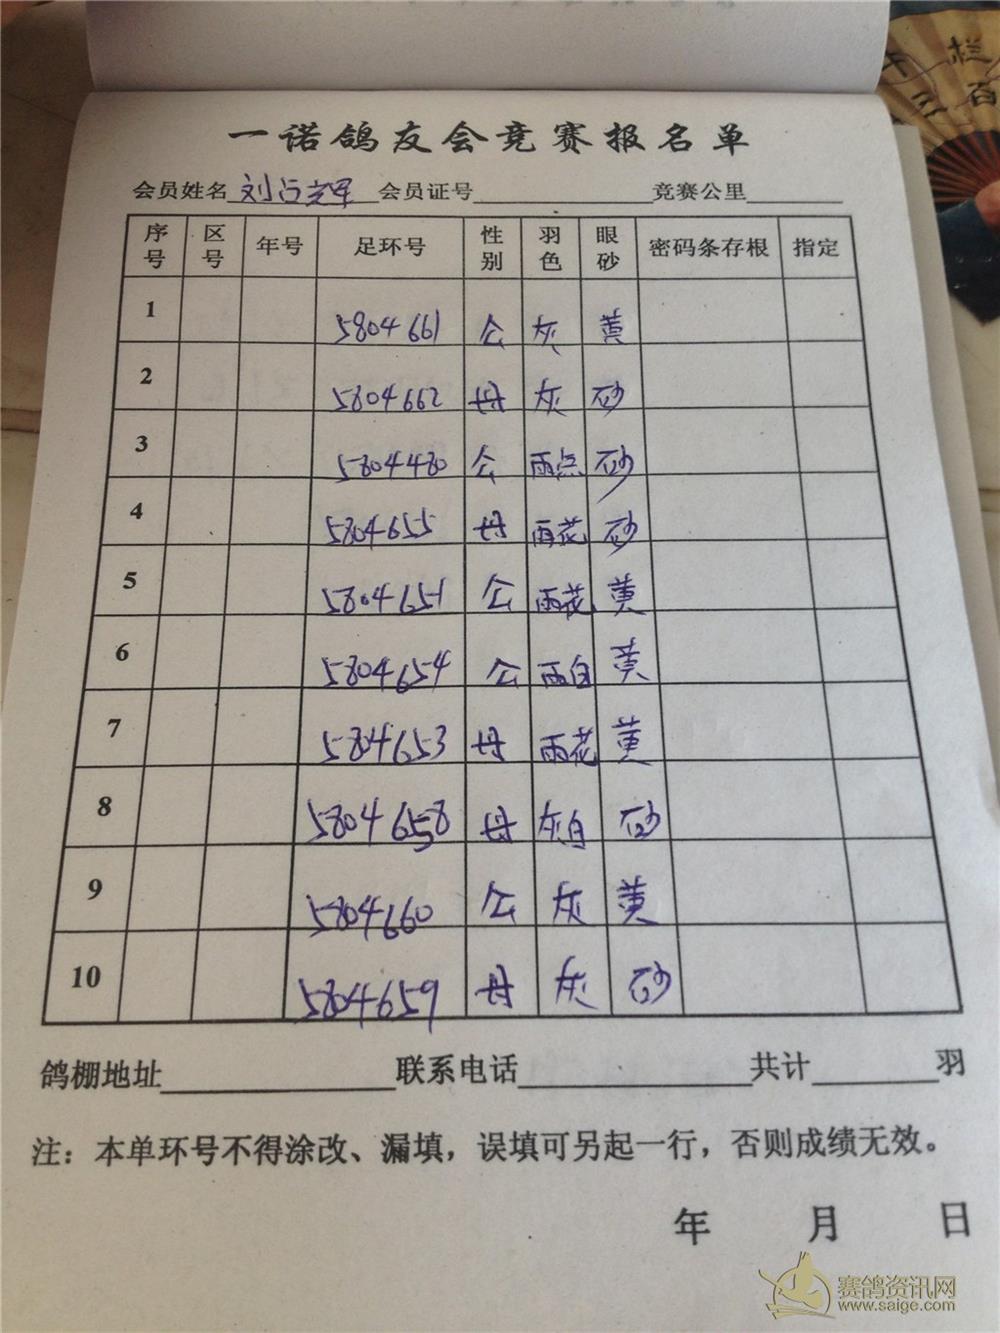 栏
三百
一诺鸽友会竞赛报名单
会员姓名 刘占辉 会员证号 竞赛公里
序号 区号 年号 足环号 性别 羽色 眼砂 密码条存根 指定
1 5804661 公 灰 黄
2 5804662 母 灰 砂
3 5804480 公 雨点 砂
4 5804655 母 雨花 砂
5 5804651 公 雨花 黄
6 5804654 公 雨白 黄
7 5804653 母 雨花 黄
8 5804658 母 灰白 砂
9 5804660 公 灰 黄
10 5804659 母 灰 砂
鸽棚地址 联系电话 共计 羽
注：本单环号不得涂改、漏填，误填可另起一行，否则成绩无效。
年 月 日
赛鸽资讯网
www.saige.com